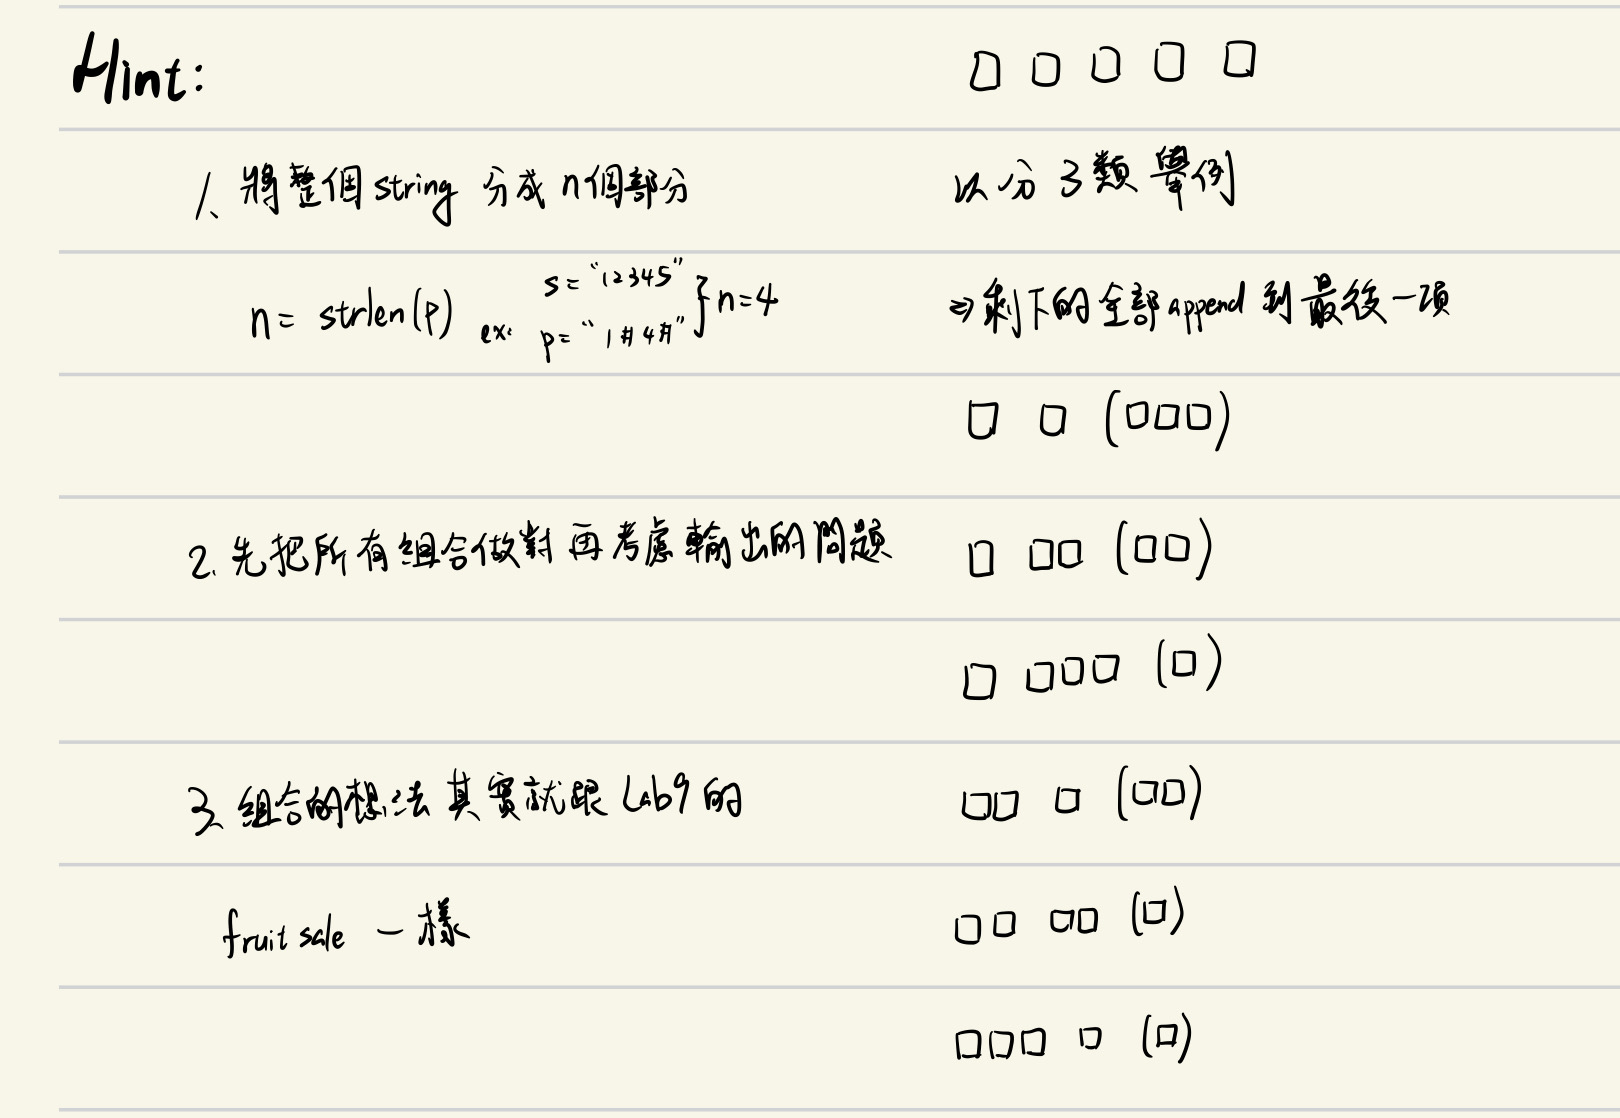 Hint:
1. 將整個string 分成 n個部分
n= strlen(p) ex: s="12345" p="1#4#" } n=4
2. 先把所有組合做對 再考慮輸出的問題
3. 組合的想法 其實就跟 Lab9 的
fruit sale 一樣
□ □ □ □ □
以分 3類 舉例
⇒ 剩下的全部 append 到最後一項
□ □ (□□□)
□ □□ (□□)
□ □□□ (□)
□□ □ (□□)
□□ □□ (□)
□□□ □ (□)